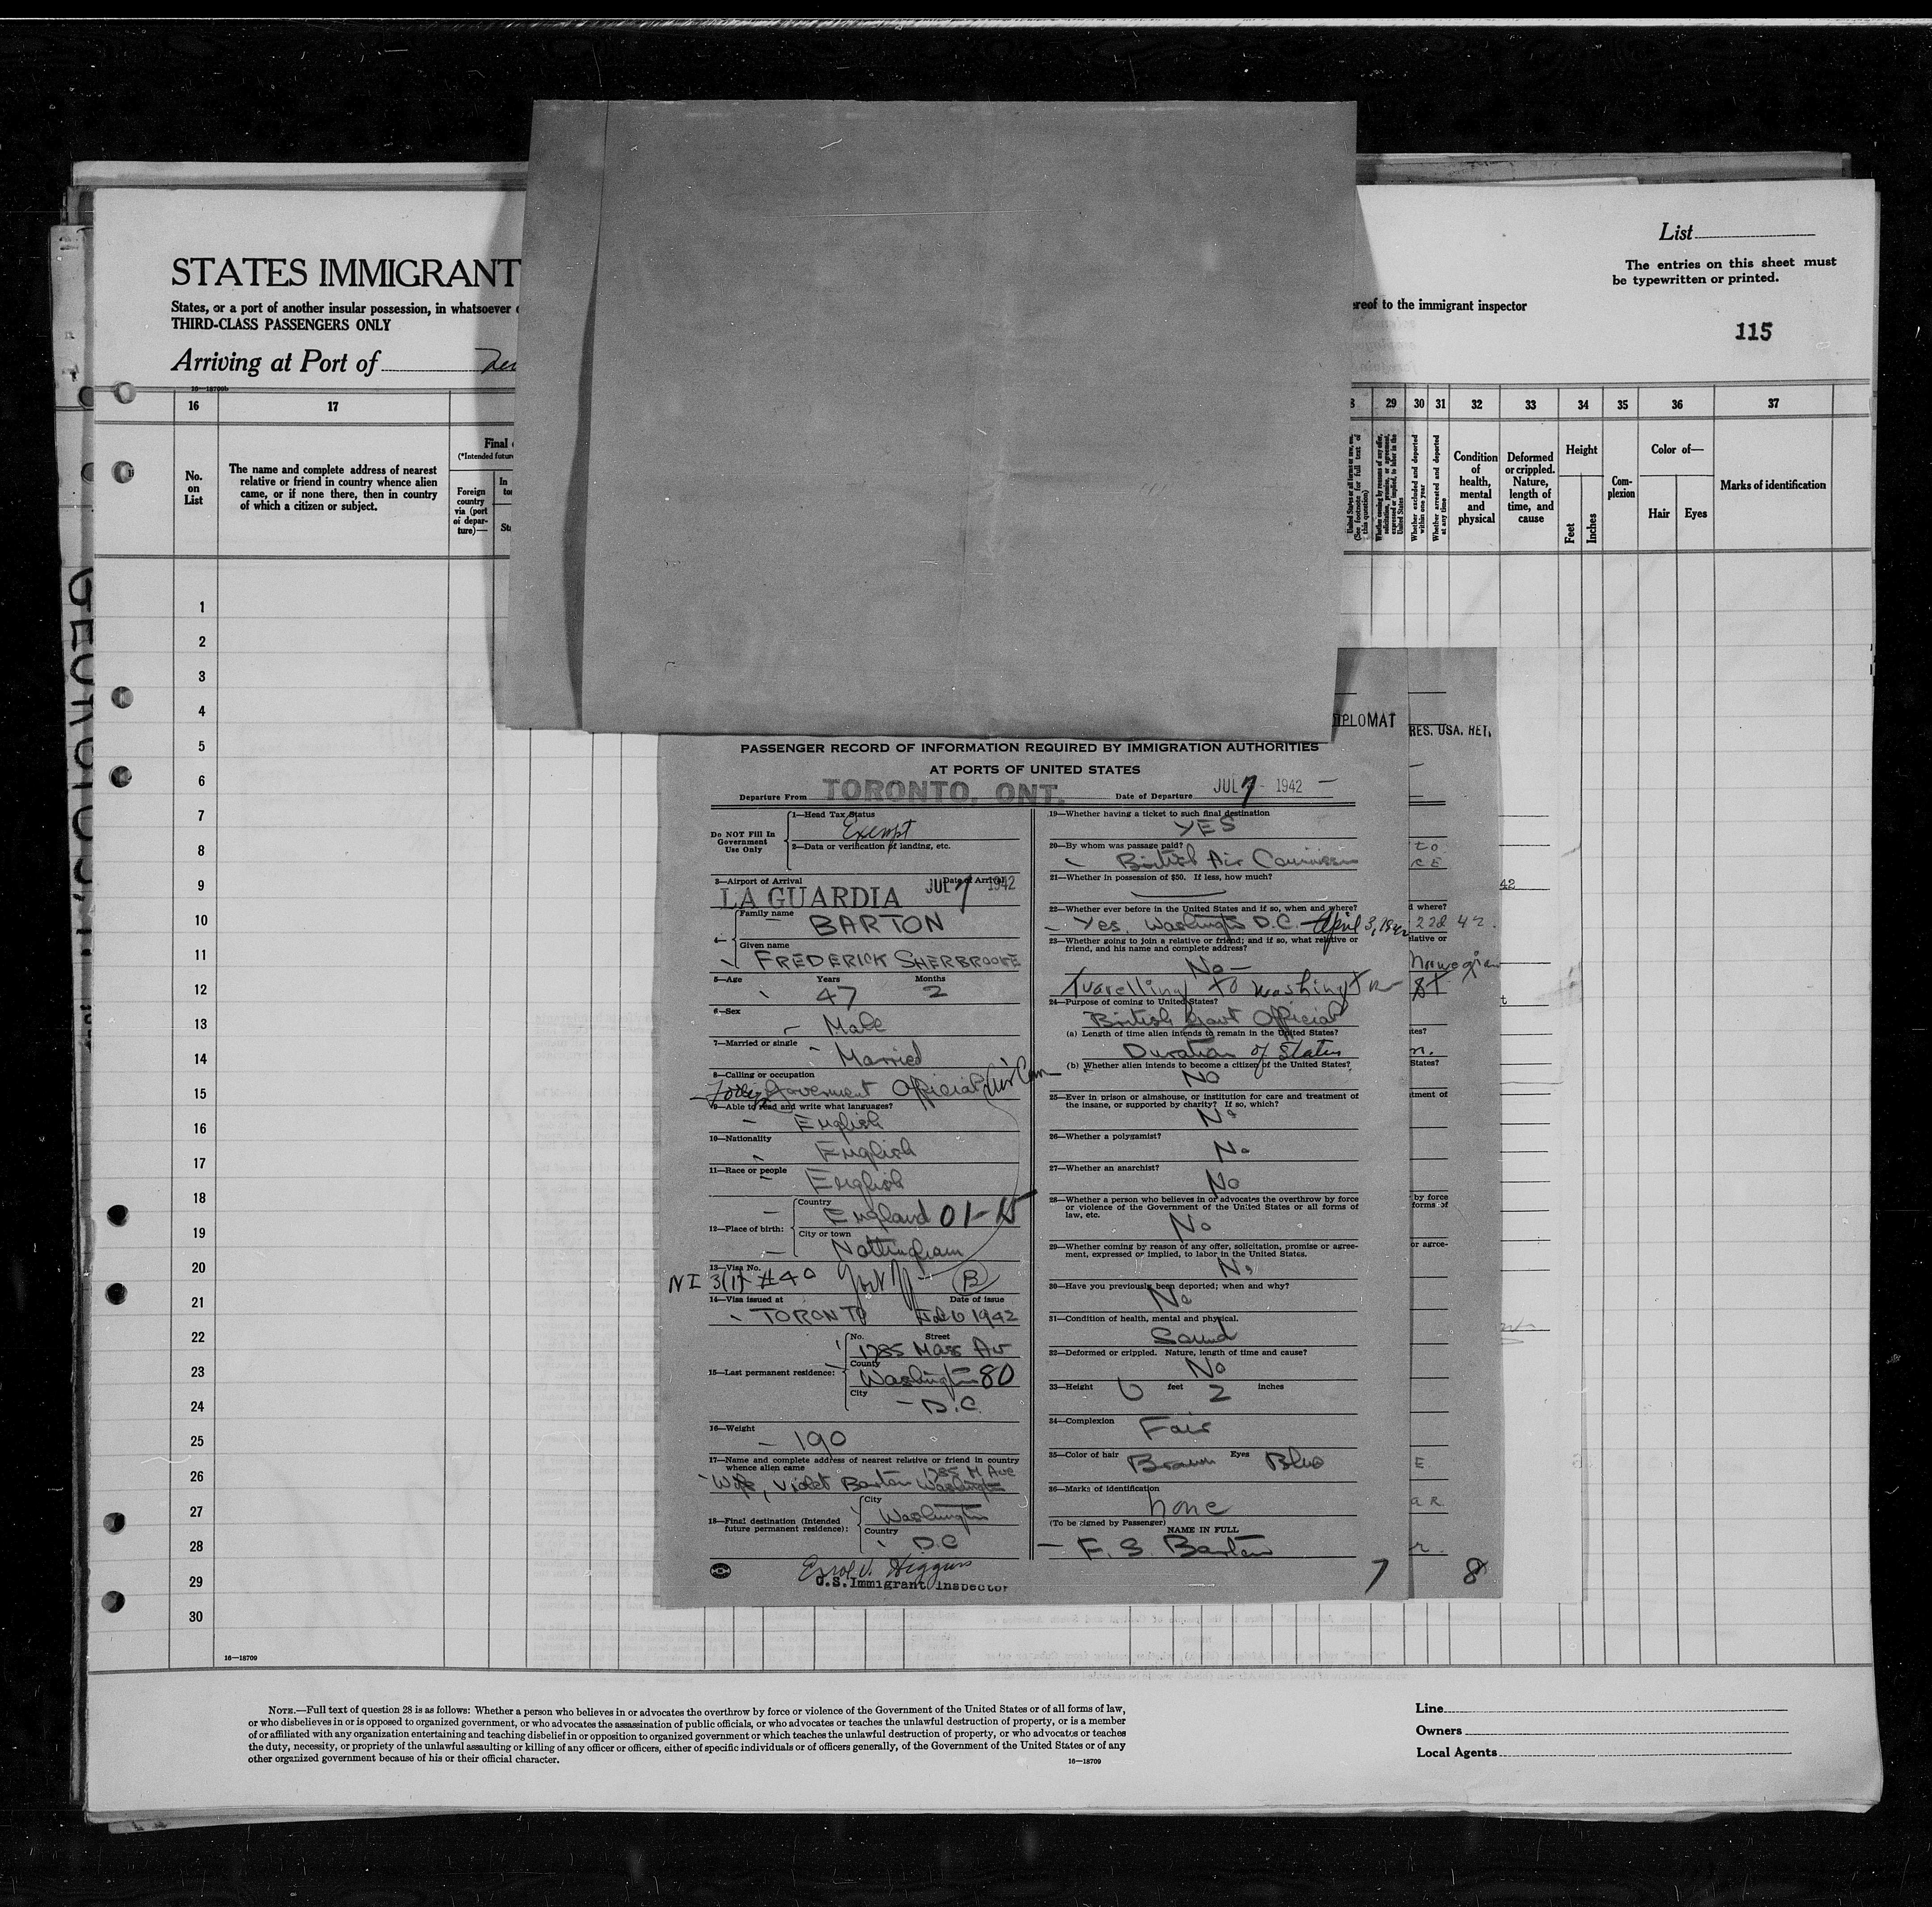 List
The entries on this sheet must
be typewritten or printed.
115
STATES IMMIGRANT
States, or a port of another insular possession, in whatsoever
ereof to the immigrant inspector
THIRD-CLASS PASSENGERS ONLY
Arriving at Port of
16 17 29 30 31 32 33 34 35 36 37
No. on List
The name and complete address of nearest
relative or friend in country whence alien
came, or if none there, then in country
of which a citizen or subject.
Final
(*Intended future
Foreign country via (port of departure)—
United States or all forms of law, etc. (See footnote for full text of this question)
Whether coming by reason of any offer, solicitation, promise, or agreement, expressed or implied, to labor in the United States
Whether excluded and deported within one year
Whether arrested and deported at any time
Condition of health, mental and physical
Deformed or crippled. Nature, length of time, and cause
Height
Feet
Inches
Com-
plexion
Color of—
Hair
Eyes
Marks of identification
1
2
3
4
5
6
7
8
9
10
11
12
13
14
15
16
17
18
19
20
21
22
23
24
25
26
27
28
29
30
16—18709
DIPLOMAT
RES. USA. RET.
PASSENGER RECORD OF INFORMATION REQUIRED BY IMMIGRATION AUTHORITIES
AT PORTS OF UNITED STATES
Departure From TORONTO, ONT. Date of Departure JUL 7 - 1942
Do NOT Fill In Government Use Only
1—Head Tax Status
Exempt
2—Data or verification of landing, etc.
3—Airport of Arrival Date of Arrival
LA GUARDIA JUL 7 1942
Family name
BARTON
Given name
FREDERICK SHERBROOKE
5—Age Years Months
47 2
6—Sex
Male
7—Married or single
Married
8—Calling or occupation
Government Official
9—Able to read and write what languages?
English
10—Nationality
English
11—Race or people
English
12—Place of birth:
Country
England 01-15
City or town
Nottingham
13—Visa No.
NI 3(1) #40 B
14—Visa issued at Date of issue
TORONTO 1942
15—Last permanent residence:
No. Street
1785 Mass Av
County
Washington 80
City
D.C.
16—Weight
190
17—Name and complete address of nearest relative or friend in country
whence alien came
1785 M Ave
Wife, Violet Barton Washington
18—Final destination (Intended
future permanent residence):
City
Washington
Country
D.C
Errol J. Higgins
U.S. Immigrant Inspector
19—Whether having a ticket to such final destination
YES
20—By whom was passage paid?
British Air Commission
21—Whether in possession of $50. If less, how much?
22—Whether ever before in the United States and if so, when and where?
Yes. Washington D.C. April 3, 1942
23—Whether going to join a relative or friend; and if so, what relative or
friend, and his name and complete address?
No—
Travelling to Washington
24—Purpose of coming to United States?
British Govt Official
(a) Length of time alien intends to remain in the United States?
Duration of Status
(b) Whether alien intends to become a citizen of the United States?
NO
25—Ever in prison or almshouse, or institution for care and treatment of
the insane, or supported by charity? If so, which?
No
26—Whether a polygamist?
No
27—Whether an anarchist?
No
28—Whether a person who believes in or advocates the overthrow by force
or violence of the Government of the United States or all forms of
law, etc.
No
29—Whether coming by reason of any offer, solicitation, promise or agree-
ment, expressed or implied, to labor in the United States.
No
30—Have you previously been deported; when and why?
No
31—Condition of health, mental and physical.
Sound
32—Deformed or crippled. Nature, length of time and cause?
No
33—Height 6 feet 2 inches
34—Complexion
Fair
35—Color of hair Brown Eyes Blue
36—Marks of identification
none
(To be signed by Passenger)
NAME IN FULL
F. S. Barton
7
8
NOTE.—Full text of question 28 is as follows: Whether a person who believes in or advocates the overthrow by force or violence of the Government of the United States or of all forms of law,
or who disbelieves in or is opposed to organized government, or who advocates the assassination of public officials, or who advocates or teaches the unlawful destruction of property, or is a member
of or affiliated with any organization entertaining and teaching disbelief in or opposition to organized government or which teaches the unlawful destruction of property, or who advocates or teaches
the duty, necessity, or propriety of the unlawful assaulting or killing of any officer or officers, either of specific individuals or of officers generally, of the Government of the United States or of any
other organized government because of his or their official character.
16—18709
Line
Owners
Local Agents